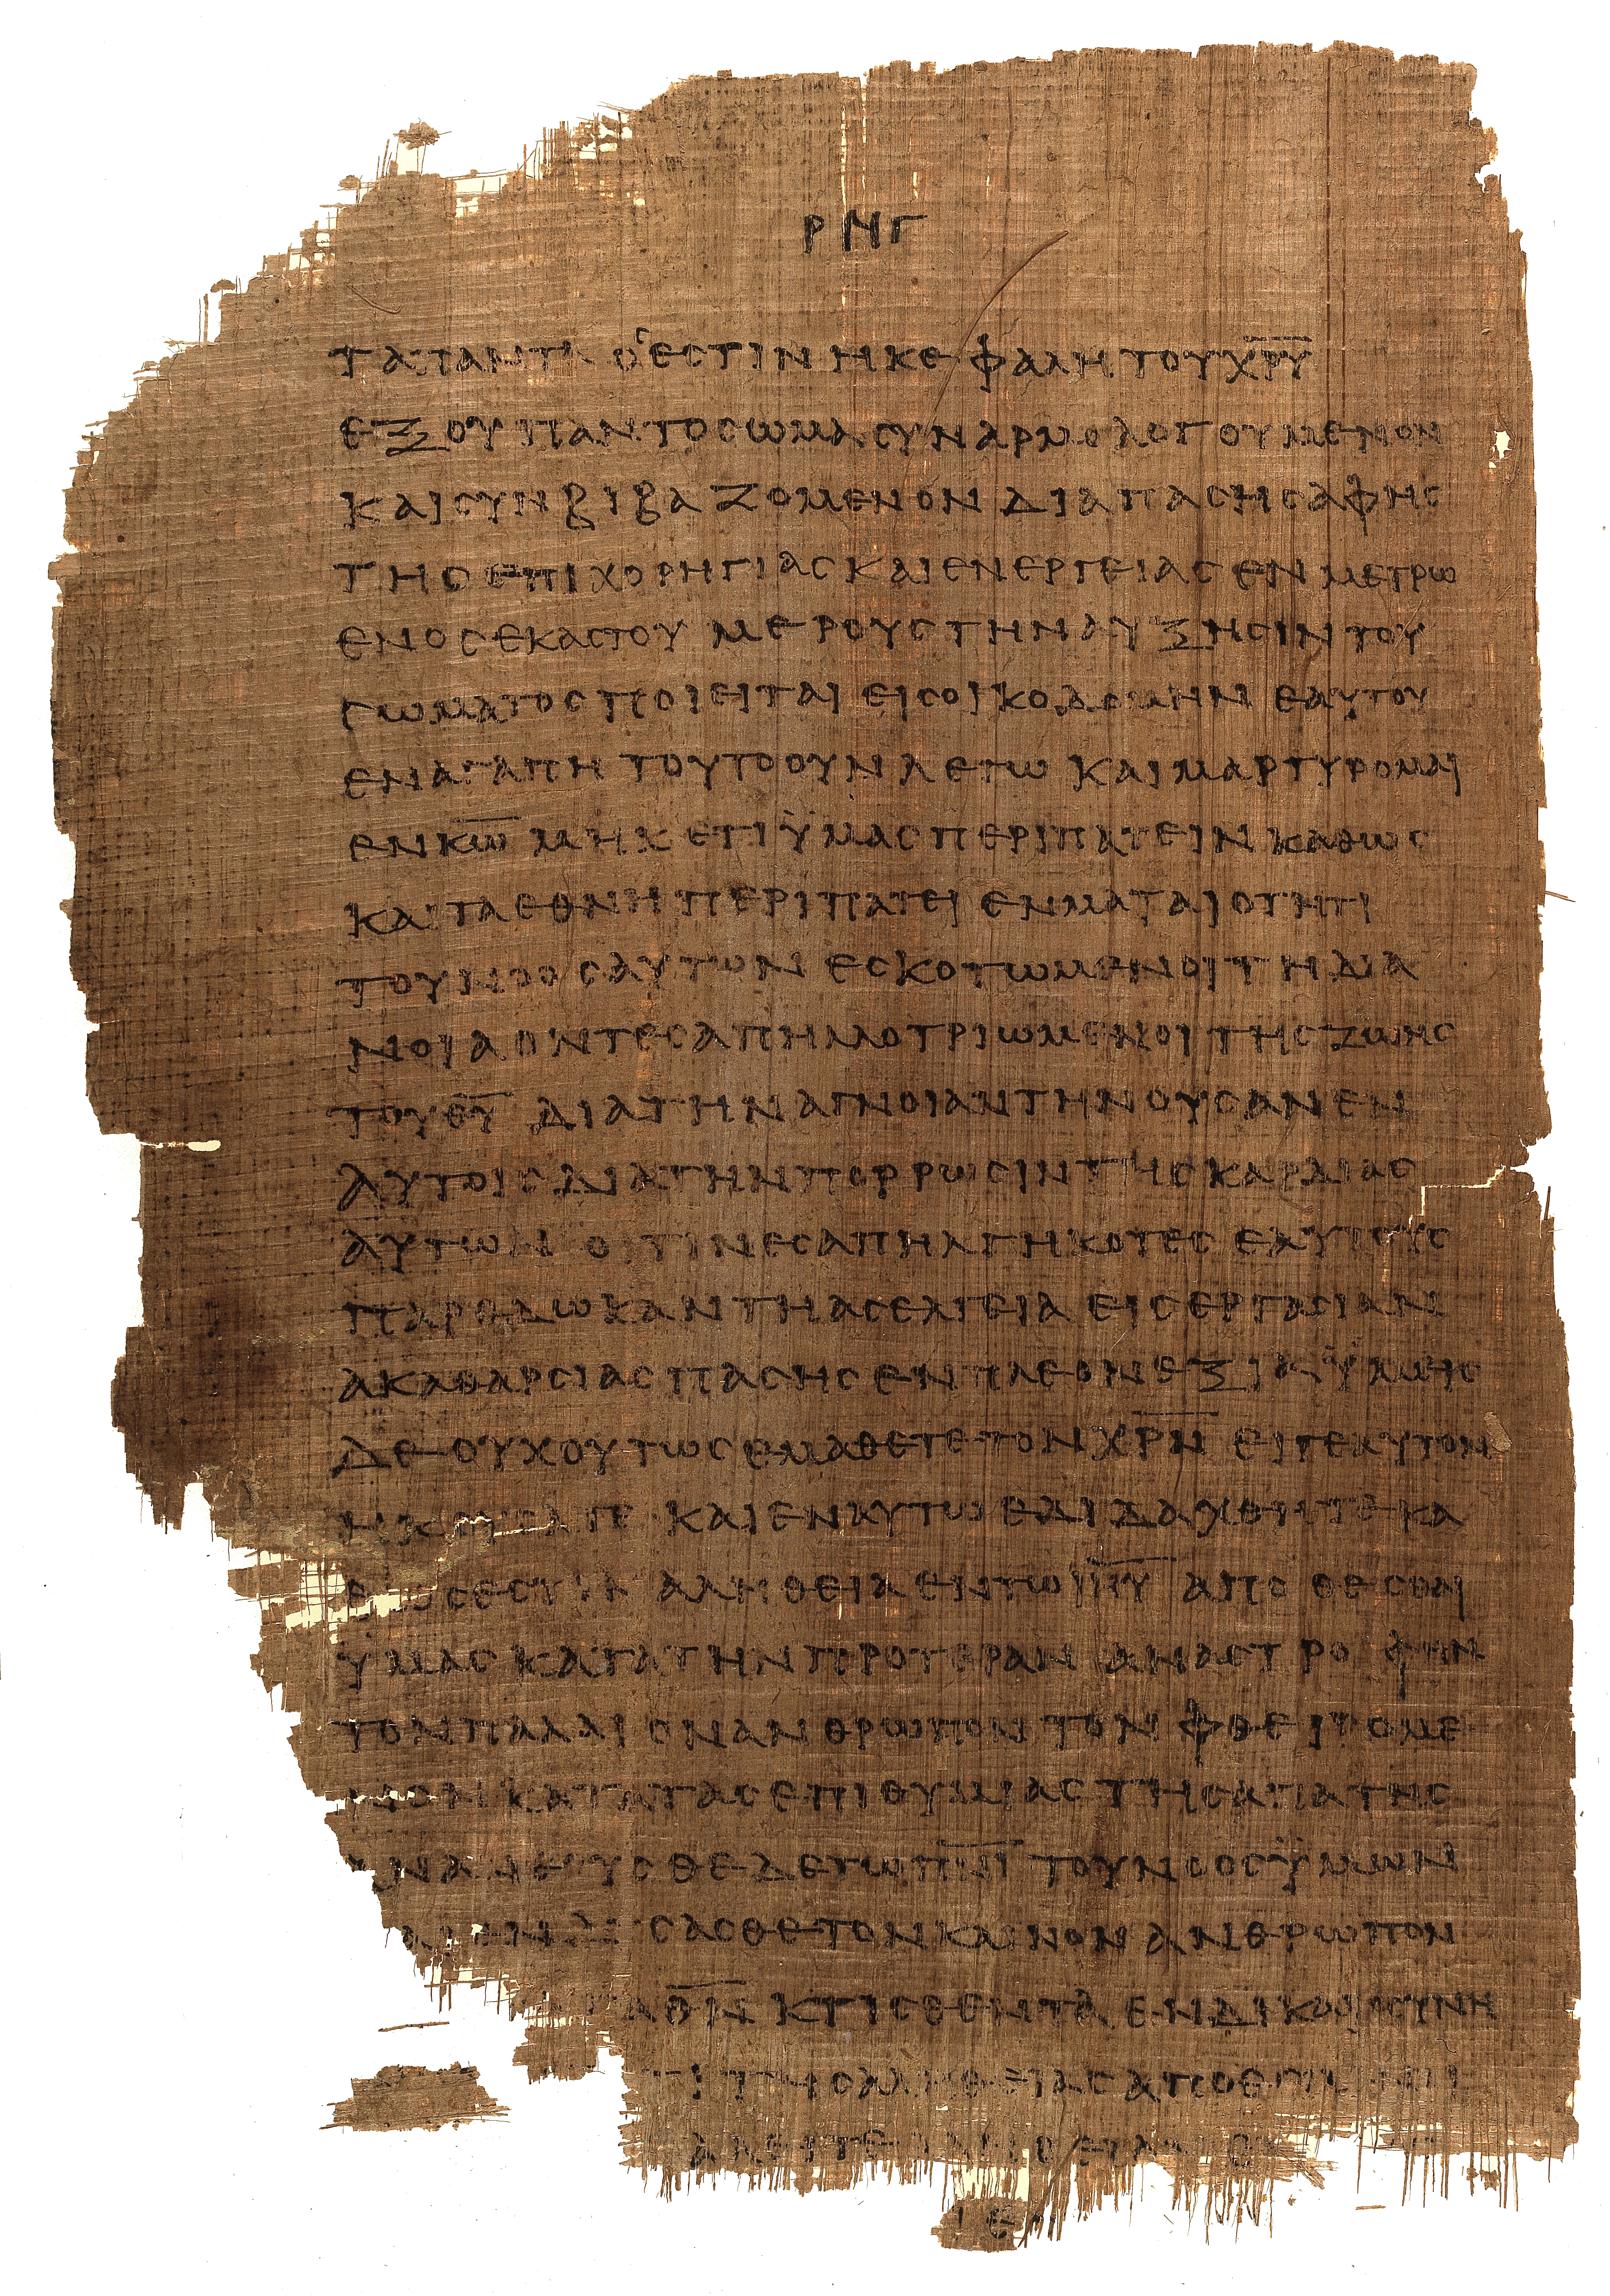 ΡΝΓ
ΤΑ ΠΑΝΤΑ Ο ΕΣΤΙΝ Η ΚΕΦΑΛΗ ΤΟΥ Χ̅Ρ̅Υ̅
ΕΞ ΟΥ ΠΑΝ ΤΟ ΣΩΜΑ ΣΥΝΑΡΜΟΛΟΓΟΥΜΕΝΟΝ
ΚΑΙ ΣΥΝΒΙΒΑΖΟΜΕΝΟΝ ΔΙΑ ΠΑΣΗΣ ΑΦΗΣ
ΤΗΣ ΕΠΙΧΟΡΗΓΙΑΣ ΚΑΙ ΕΝΕΡΓΕΙΑΣ ΕΝ ΜΕΤΡΩ
ΕΝΟΣ ΕΚΑΣΤΟΥ ΜΕΡΟΥΣ ΤΗΝ ΑΥΞΗΣΙΝ ΤΟΥ
ΣΩΜΑΤΟΣ ΠΟΙΕΙΤΑΙ ΕΙΣ ΟΙΚΟΔΟΜΗΝ ΕΑΥΤΟΥ
ΕΝ ΑΓΑΠΗ ΤΟΥΤΟ ΟΥΝ ΛΕΓΩ ΚΑΙ ΜΑΡΤΥΡΟΜΑΙ
ΕΝ Κ̅Ω̅ ΜΗΚΕΤΙ ΫΜΑΣ ΠΕΡΙΠΑΤΕΙΝ ΚΑΘΩΣ
ΚΑΙ ΤΑ ΕΘΝΗ ΠΕΡΙΠΑΤΕΙ ΕΝ ΜΑΤΑΙΟΤΗΤΙ
ΤΟΥ ΝΟΟΣ ΑΥΤΩΝ ΕΣΚΟΤΩΜΕΝΟΙ ΤΗ ΔΙΑ
ΝΟΙΑ ΟΝΤΕΣ ΑΠΗΛΛΟΤΡΙΩΜΕΝΟΙ ΤΗΣ ΖΩΗΣ
ΤΟΥ Θ̅Υ̅ ΔΙΑ ΤΗΝ ΑΓΝΟΙΑΝ ΤΗΝ ΟΥΣΑΝ ΕΝ
ΑΥΤΟΙΣ ΔΙΑ ΤΗΝ ΠΟΡΡΩΣΙΝ ΤΗΣ ΚΑΡΔΙΑΣ
ΑΥΤΩΝ ΟΙΤΙΝΕΣ ΑΠΗΛΓΗΚΟΤΕΣ ΕΑΥΤΟΥΣ
ΠΑΡΕΔΩΚΑΝ ΤΗ ΑΣΕΛΓΕΙΑ ΕΙΣ ΕΡΓΑΣΙΑΝ
ΑΚΑΘΑΡΣΙΑΣ ΠΑΣΗΣ ΕΝ ΠΛΕΟΝΕΞΙΑ ΫΜΕΙΣ
ΔΕ ΟΥΧ ΟΥΤΩΣ ΕΜΑΘΕΤΕ ΤΟΝ Χ̅Ρ̅Ν̅ ΕΙ ΓΕ ΑΥΤΟΝ
ΗΚΟΥΣΑΤΕ ΚΑΙ ΕΝ ΑΥΤΩ ΕΔΙΔΑΧΘΗΤΕ ΚΑ
ΘΩΣ ΕΣΤΙΝ ΑΛΗΘΕΙΑ ΕΝ ΤΩ Ι̅Η̅Υ̅ ΑΠΟΘΕΣΘΑΙ
ΫΜΑΣ ΚΑΤΑ ΤΗΝ ΠΡΟΤΕΡΑΝ ΑΝΑΣΤΡΟΦΗΝ
ΤΟΝ ΠΑΛΑΙΟΝ ΑΝΘΡΩΠΟΝ ΤΟΝ ΦΘΕΙΡΟΜΕ
ΝΟΝ ΚΑΤΑ ΤΑΣ ΕΠΙΘΥΜΙΑΣ ΤΗΣ ΑΠΑΤΗΣ
ΑΝΑΝΕΟΥΣΘΕ ΔΕ ΤΩ Π̅Ν̅Ι̅ ΤΟΥ ΝΟΟΣ ΫΜΩΝ
ΣΑΣΘΕ ΤΟΝ ΚΑΙΝΟΝ ΑΝΘΡΩΠΟΝ
Θ̅Ν̅ ΚΤΙΣΘΕΝΤΑ ΕΝ ΔΙΚΑΙΟΣΥΝΗ
ΤΗΣ ΑΛΗΘΕΙΑΣ ΑΠΟΘΕΜΕΝΟΙ